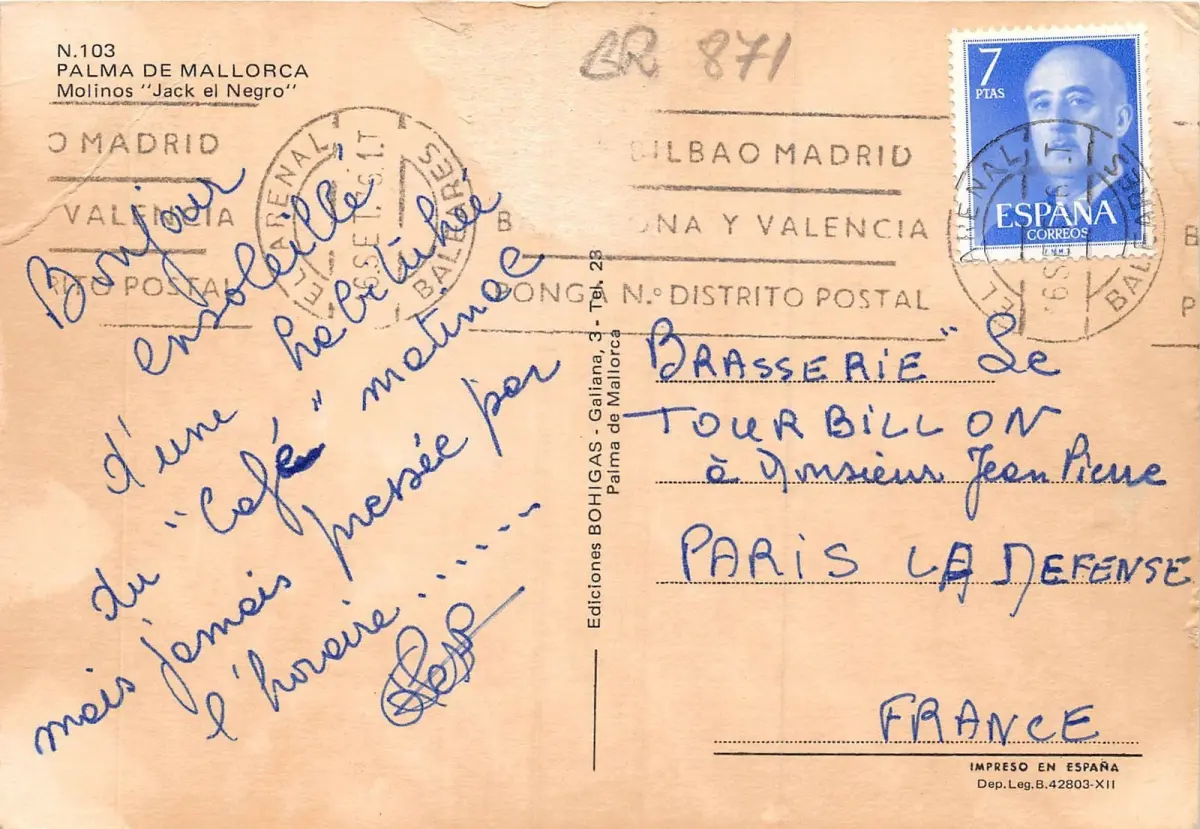 N.103
PALMA DE MALLORCA
Molinos "Jack el Negro"
GR 871
7
PTAS
ESPAÑA
CORREOS
O MADRID
VALENCIA
RITO POSTAL
EL ARENAL
BALEARES
BILBAO MADRID
B ONA Y VALENCIA
PONGA N.º DISTRITO POSTAL
EL ARENAL
BALEARES
Bonjour
ensoleillé
d'une habituée
du "Café" matinal
mais jamais pressée par
l'horaire........
Ediciones BOHIGAS - Galiana, 3 - Tel. 23
Palma de Mallorca
BRASSERIE "Le
TOURBILLON
à Monsieur Jean Pierre
PARIS LA DEFENSE
FRANCE
IMPRESO EN ESPAÑA
Dep.Leg.B.42803-XII